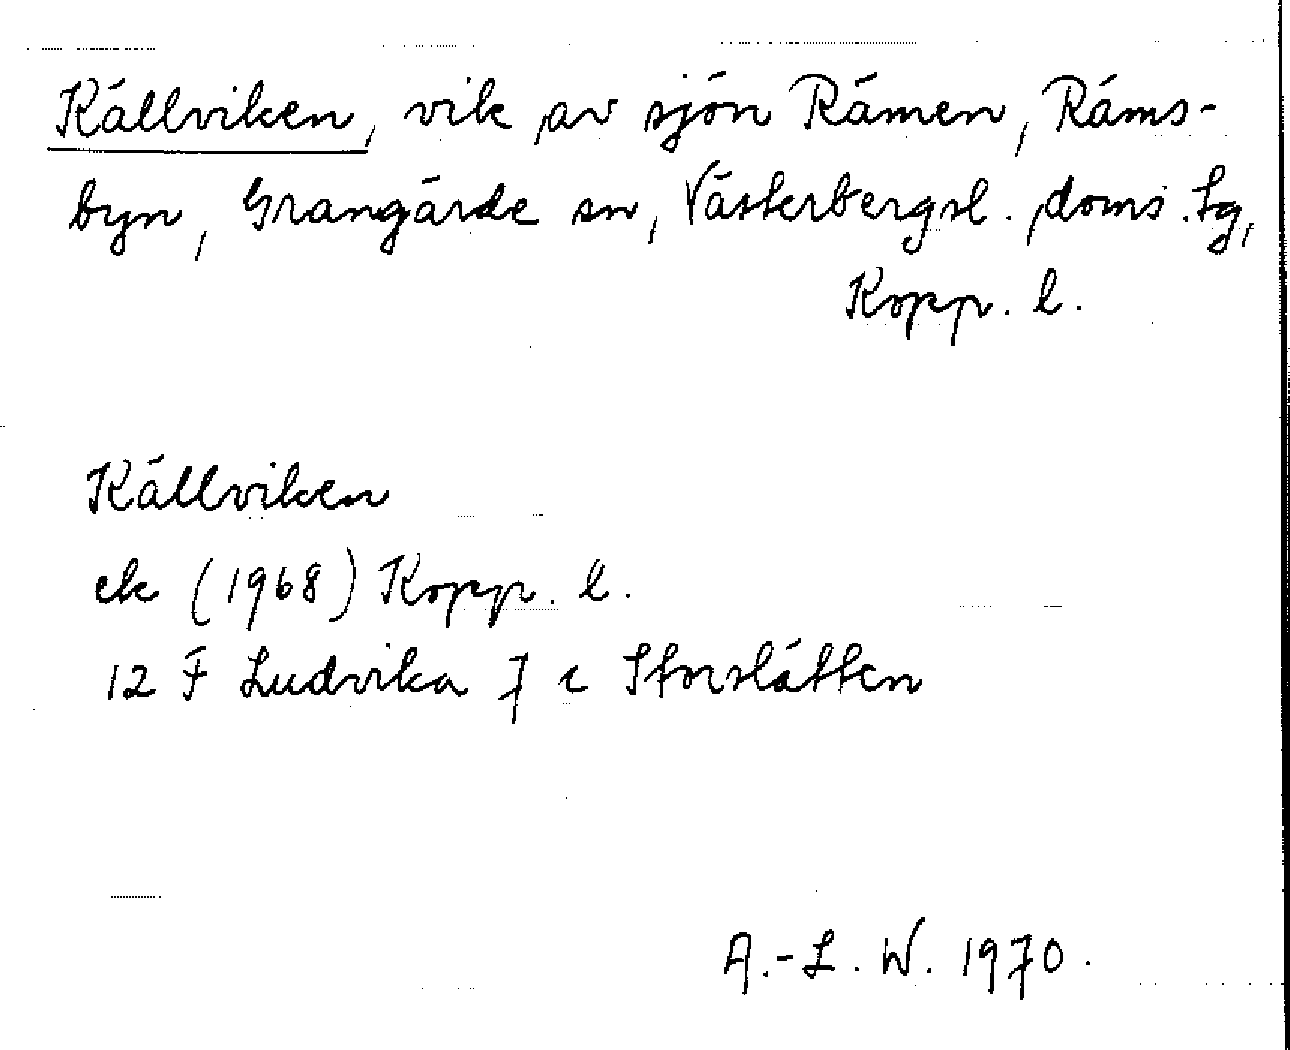 Källviken, vik av sjön Rämen, Räms-
byn, Grangärde sn, Västerbergsl. doms. tg,
Kopp. l.
Källviken
ek (1968) Kopp. l.
12 F Ludvika 7 c Storslätten
A.-L. W. 1970.